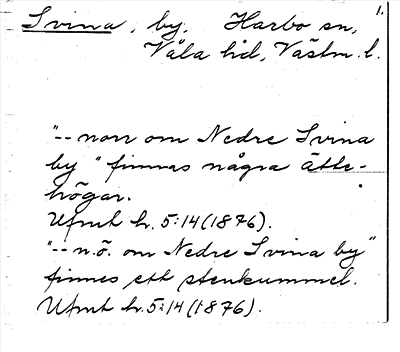 1.
Svina, by. Harbo sn,
Våla hd, Västm. l.
"-- norr om Nedre Svina
by" finnas några ätte-
högar.
Ufmt h. 5:14 (1876).
"-- n.ö. om Nedre Svina by"
finnes ett stenkummel.
Ufmt h. 5:14 (1876).